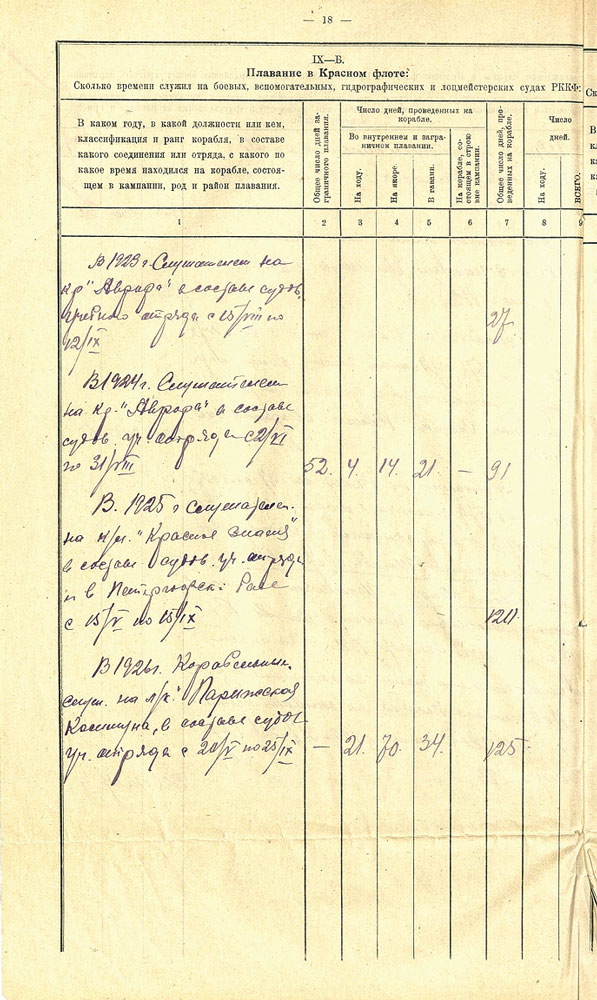 — 18 —
IX—Б.
Плавание в Красном флоте:
Сколько времени служил на боевых, вспомогательных, гидрографических и лоцмейстерских судах РККФ:
В каком году, в какой должности или кем,
классификация и ранг корабля, в составе
какого соединения или отряда, с какого по
какое время находился на корабле, состоя-
щем в кампании, род и район плавания.
Общее число дней за-
граничного плавания.
Число дней, проведенных на
корабле.
Во внутреннем и загра-
ничном плавании.
На ходу.
На якоре.
В гавани.
На корабле, со-
стоящем в строю
вне кампании.
Общее число дней, про-
веденных на корабле.
Число
дней.
На ходу.
ВСЕГО.
1 2 3 4 5 6 7 8 9
В 1923 г. Слушателем на
кр. "Аврора" в составе судов.
учебного отряда с 15/VIII по
12/IX
27.
В 1924 г. Слушателем
на кр. "Аврора" в составе
судов. уч. отряда с 2/VI
по 31/VIII 52. 4. 14. 21. — 91
В. 1925 г слушателем.
на "Красное знамя"
в составе судов. уч. отряда
и в
с 15/V по 15/IX 120.
В 1926 г. Корабельным
слуш. на л/к. "Парижская
Коммуна", в составе судов
уч. отряда с 20/V по 25/IX — 21. 70. 34. 125